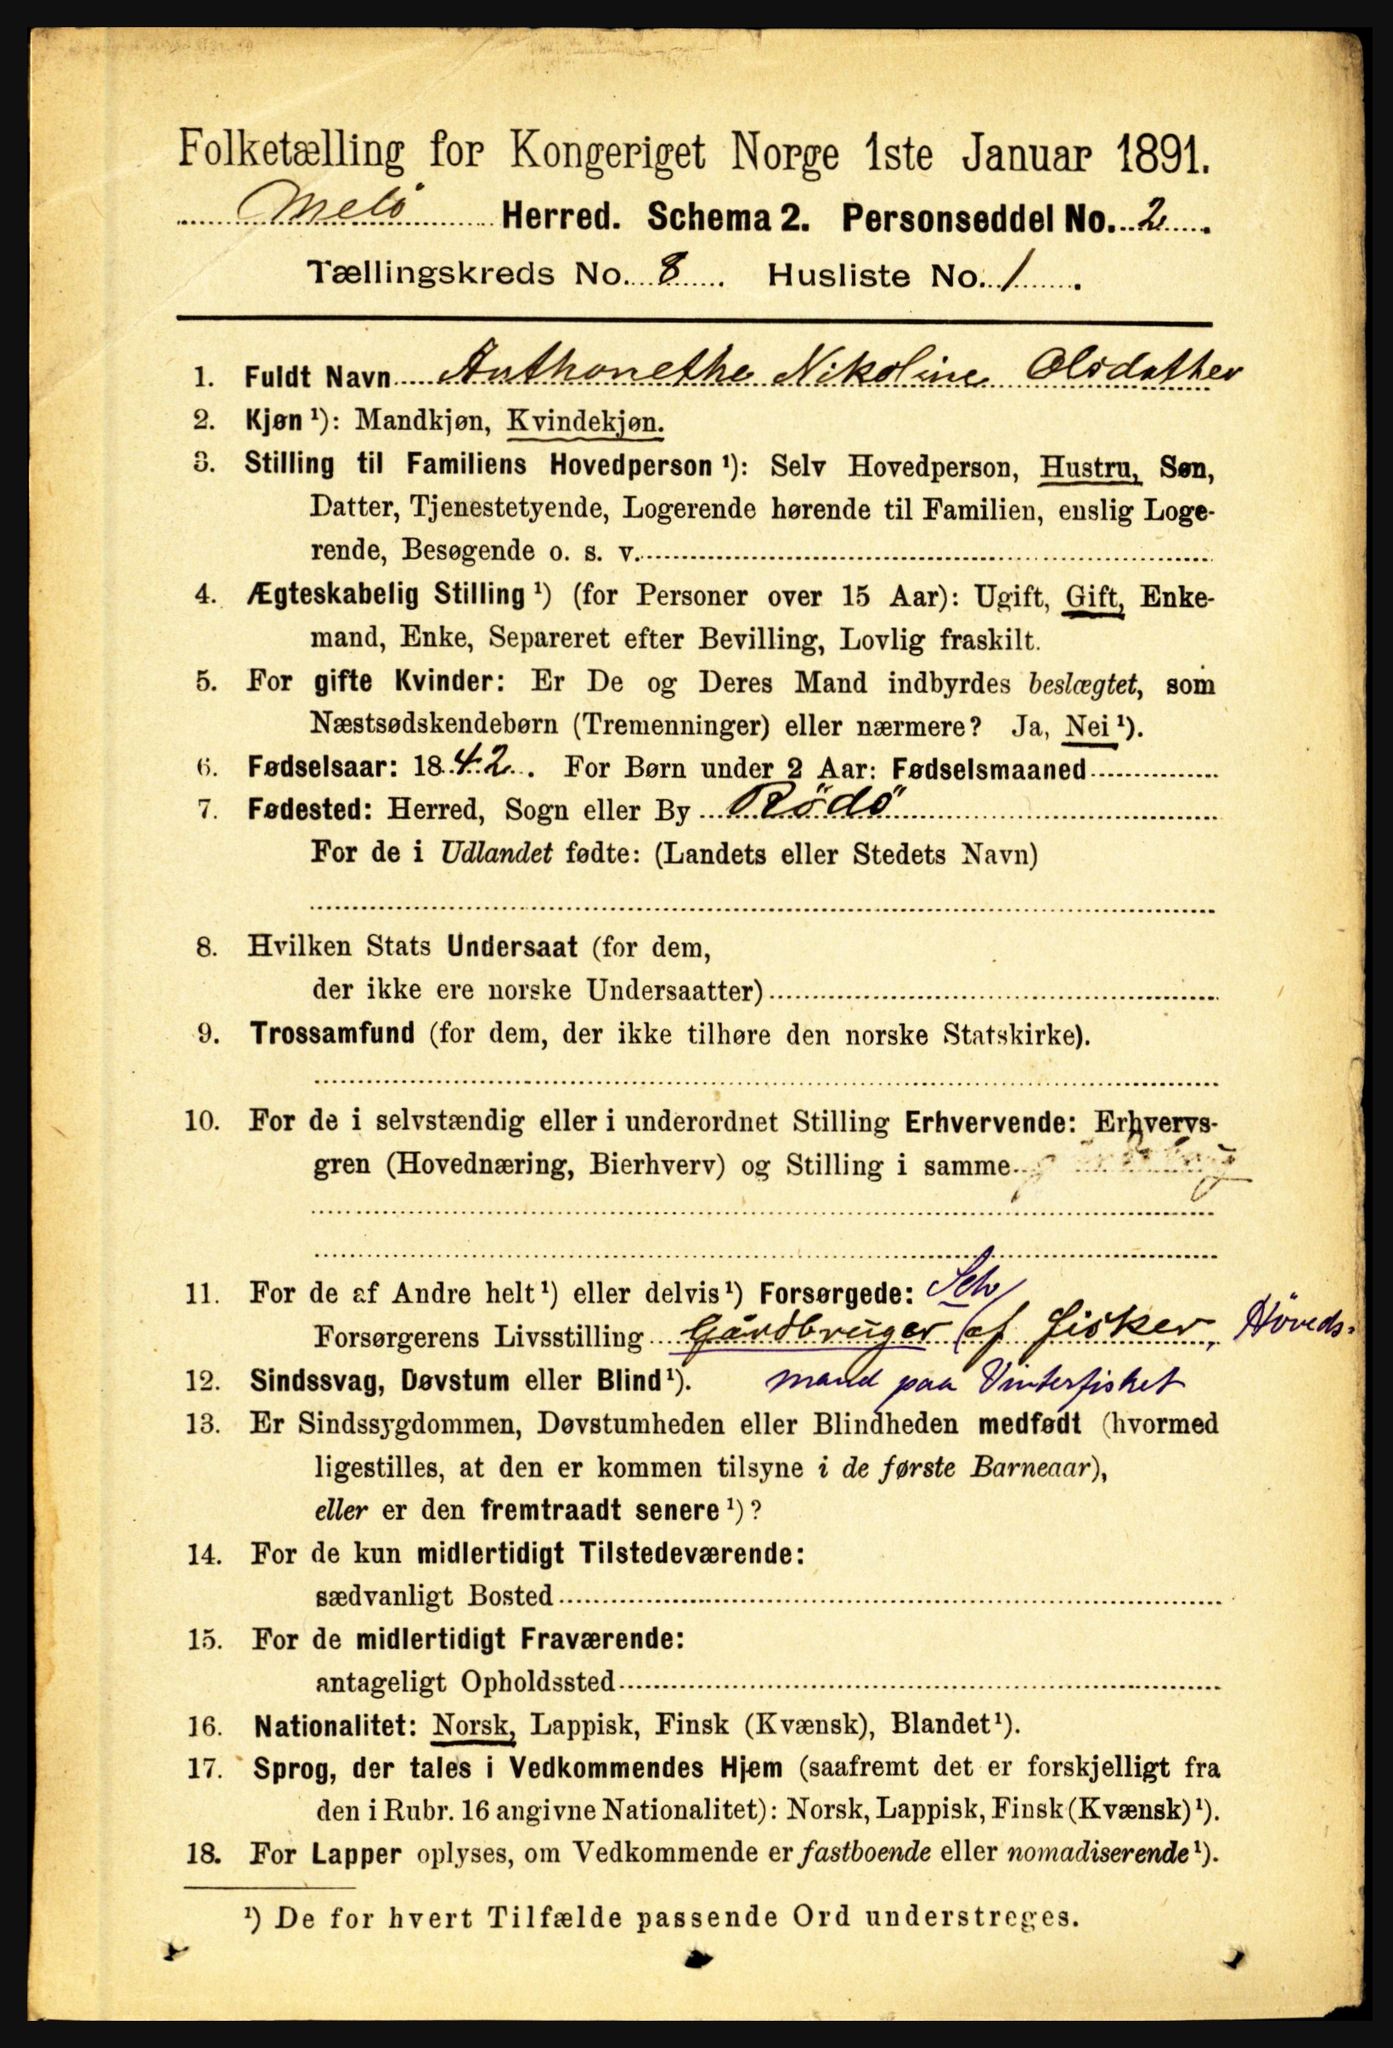 Folketælling for Kongeriget Norge 1ste Januar 1891.
Melö Herred. Schema 2. Personseddel No. 2.
Tællingskreds No. 8. Husliste No. 1.
1. Fuldt Navn Anthonethe Nikoline Olsdatter
2. Kjøn¹): Mandkjøn, Kvindekjøn.
3. Stilling til Familiens Hovedperson¹): Selv Hovedperson, Hustru, Søn,
Datter, Tjenestetyende, Logerende hørende til Familien, enslig Loge-
rende, Besøgende o. s. v.
4. Ægteskabelig Stilling¹) (for Personer over 15 Aar): Ugift, Gift, Enke-
mand, Enke, Separeret efter Bevilling, Lovlig fraskilt.
5. For gifte Kvinder: Er De og Deres Mand indbyrdes beslægtet, som
Næstsødskendebørn (Tremenninger) eller nærmere? Ja, Nei¹).
6. Fødselsaar: 1842. For Børn under 2 Aar: Fødselsmaaned
7. Fødested: Herred, Sogn eller By Rödö
For de i Udlandet fødte: (Landets eller Stedets Navn)
8. Hvilken Stats Undersaat (for dem,
der ikke ere norske Undersaatter)
9. Trossamfund (for dem, der ikke tilhøre den norske Statskirke).
10. For de i selvstændig eller i underordnet Stilling Erhvervende: Erhvervs-
gren (Hovednæring, Bierhverv) og Stilling i samme
11. For de af Andre helt¹) eller delvis¹) Forsørgede: Selv
Forsørgerens Livsstilling Gårdbruger af fisker, Höveds-
12. Sindssvag, Døvstum eller Blind¹). mand paa Vinterfisket
13. Er Sindssygdommen, Døvstumheden eller Blindheden medfødt (hvormed
ligestilles, at den er kommen tilsyne i de første Barneaar),
eller er den fremtraadt senere¹)?
14. For de kun midlertidigt Tilstedeværende:
sædvanligt Bosted
15. For de midlertidigt Fraværende:
antageligt Opholdssted
16. Nationalitet: Norsk, Lappisk, Finsk (Kvænsk), Blandet¹).
17. Sprog, der tales i Vedkommendes Hjem (saafremt det er forskjelligt fra
den i Rubr. 16 angivne Nationalitet): Norsk, Lappisk, Finsk (Kvænsk)¹).
18. For Lapper oplyses, om Vedkommende er fastboende eller nomadiserende¹).
¹) De for hvert Tilfælde passende Ord understreges.